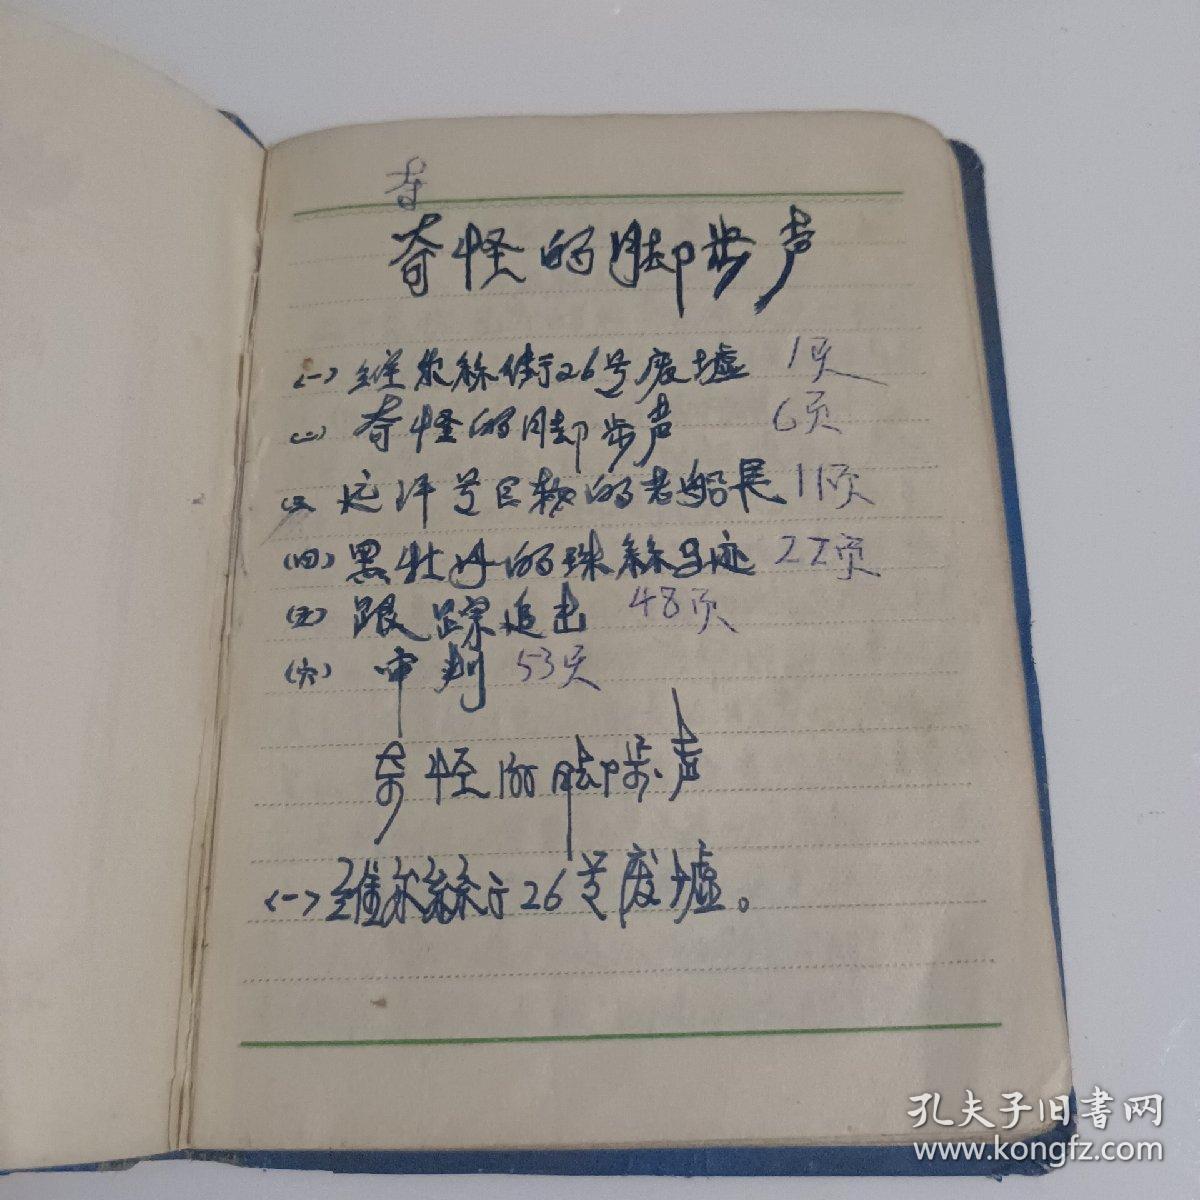 奇
奇怪的脚步声
(一) 维尔絲街26号废墟 1页
(二) 奇怪的脚步声 6页
(三) 远洋号巨轮的老船長 11页
(四) 黑牡丹的珠絲马迹 22页
(五) 跟踪追击 48页
(六) 审判 53页
奇怪的脚步声
(一) 維尔絲于26号废墟。
孔夫子旧书网
www.kongfz.com